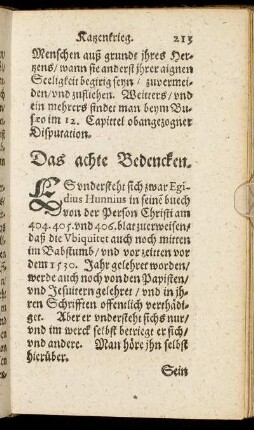 Katzenkrieg. 213
Menschen auß grunde jhres Her-
tzens / wann sie anderst jhrer aignen
Seeligkeit begirig seyn / zuvermei-
den / vnd zufliehen. Weitters / vnd
ein mehrers findet man beym Bu-
sæo im 12. Capittel obangezogner
Disputation.
Das achte Bedencken.
ES vndersteht sich zwar Egi-
dius Hunnius in seinē buech
von der Person Christi am
404. 405. vnd 406. blat zuerweisen /
daß die Vbiquitet auch noch mitten
im Babstumb / vnd vor zeitten vor
dem 1530. Jahr gelehret worden /
werde auch noch von den Papisten /
vnd Jesuitern gelehret / vnd in jh-
ren Schrifften offentlich verthädi-
get. Aber er vndersteht sichs nur /
vnd im werck selbst betriege er sich /
vnd andere. Man höre jhn selbst
hierüber.
Sein